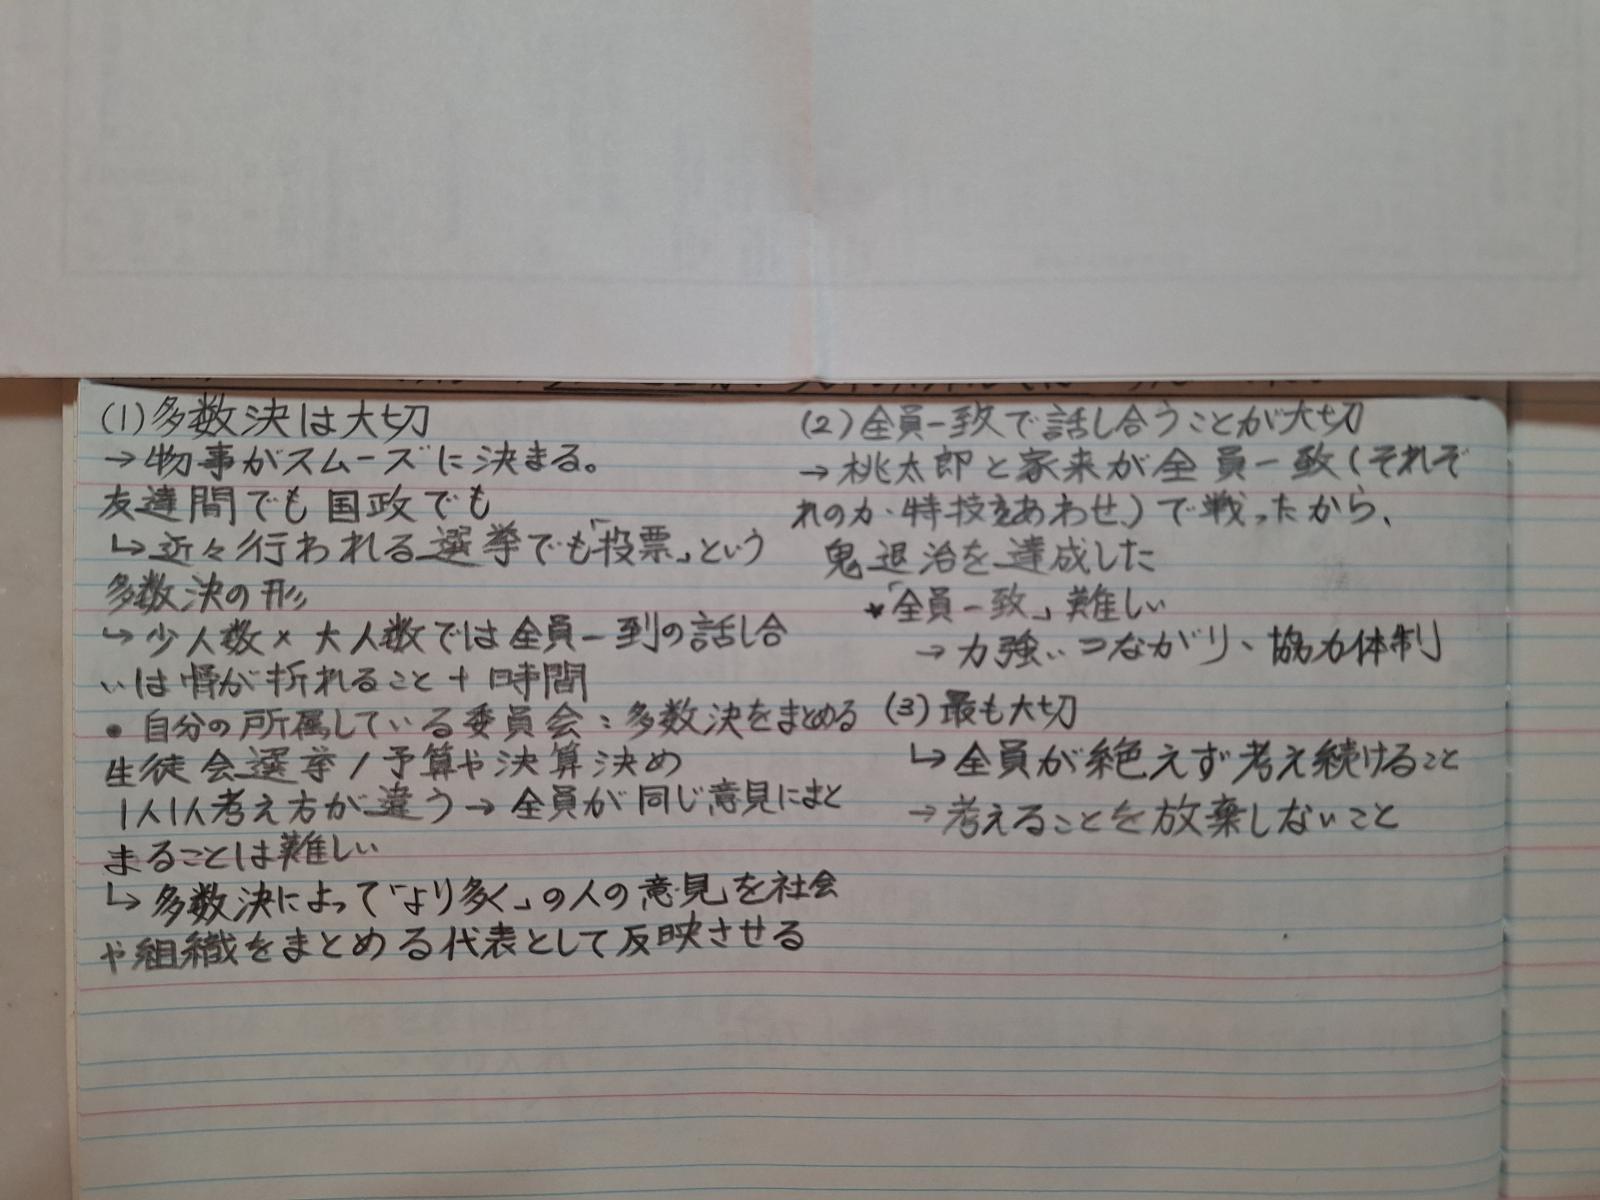 (1)多数決は大切
→物事がスムーズに決まる。
友達間でも国政でも
↳近々行われる選挙でも「投票」という
多数決の形
↳少人数× 大人数では全員一到の話し合
いは骨が折れること+時間
• 自分の所属している委員会:多数決をまとめる
生徒会選挙/予算や決算決め
1人1人考え方が違う→全員が同じ意見にまと
まることは難しい
↳多数決によって「より多く」の人の意見」を社会
や組織をまとめる代表として反映させる
(2)全員一致で話し合うことが大切
→桃太郎と家来が全員一致(それぞ
れの力・特技をあわせ)で戦ったから、
鬼退治を達成した
★「全員一致」難しい
→力強いつながり、協力体制
(3)最も大切
↳全員が絶えず考え続けること
→考えることを放棄しないこと